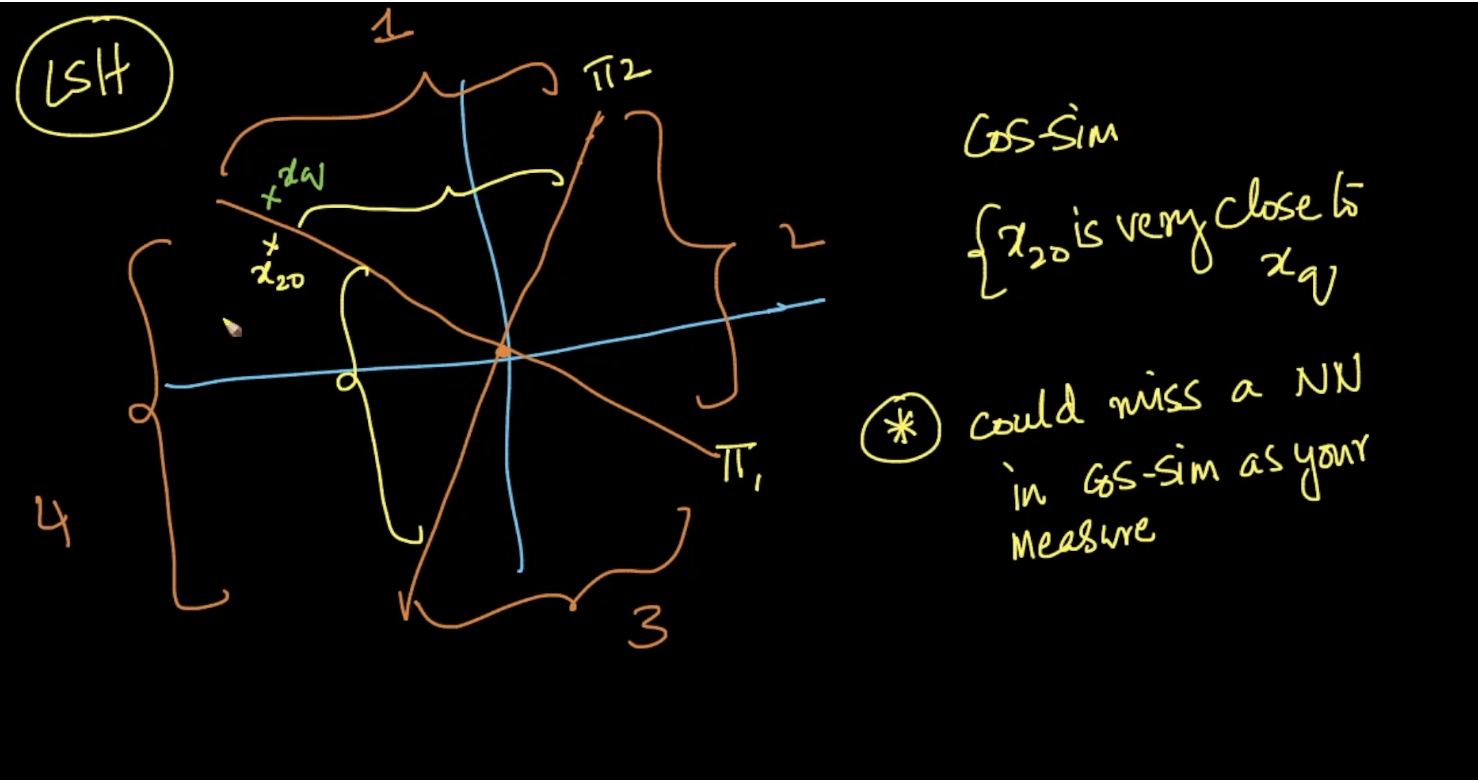 LSH
1
π2
xq
x20
2
π1
4
3
Cos-Sim
{x20 is very close to
xq
* could miss a NN
in Cos-Sim as your
measure